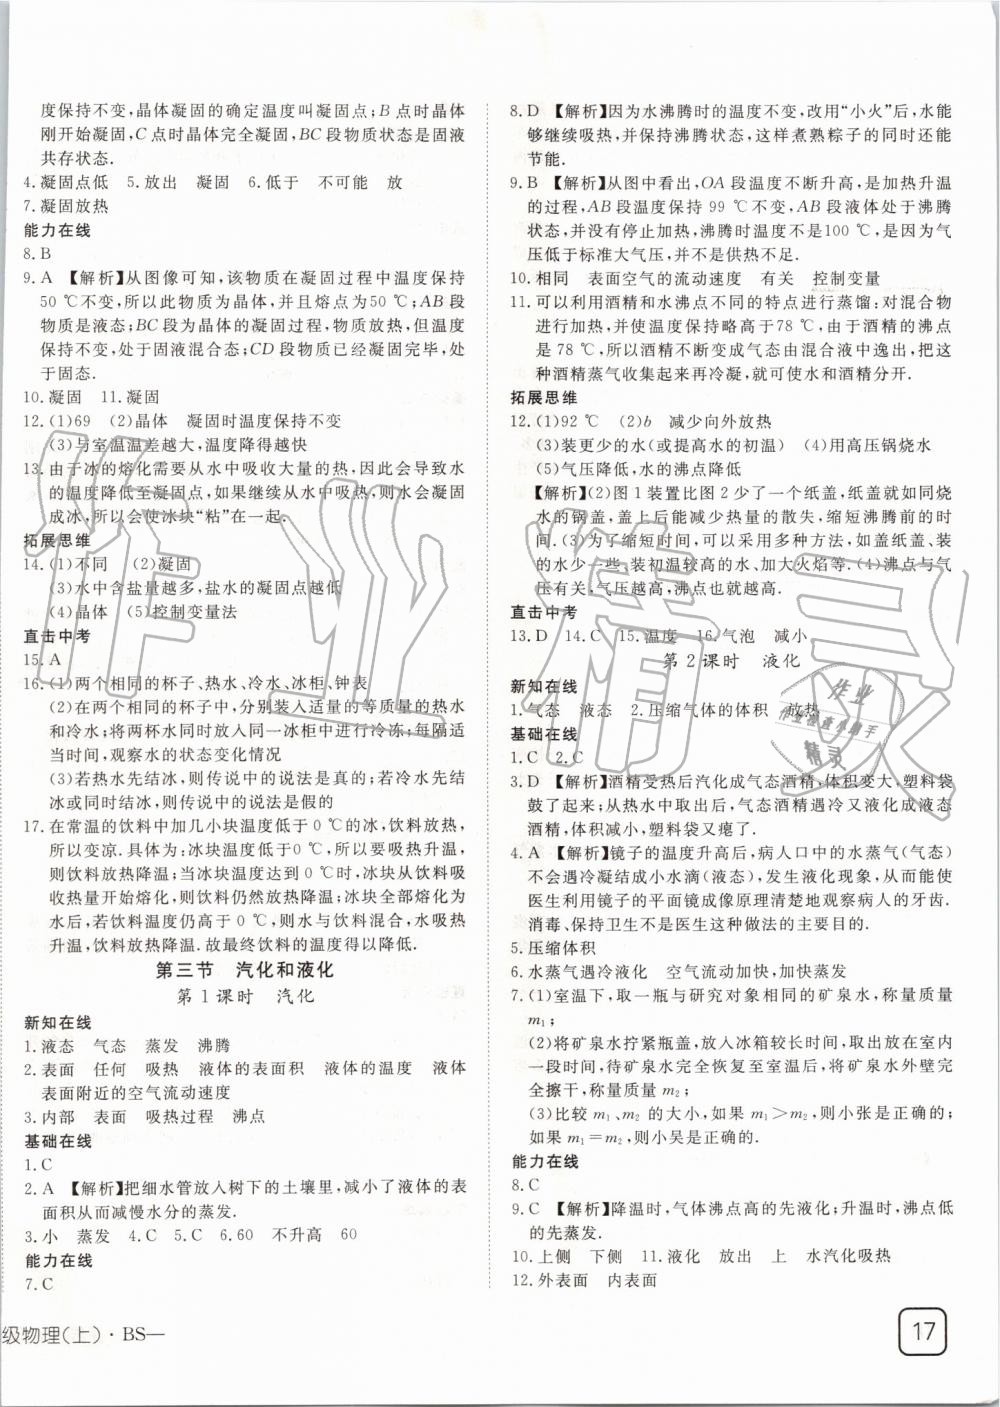 度保持不变,晶体凝固的确定温度叫凝固点;B 点时晶体
刚开始凝固,C 点时晶体完全凝固,BC 段物质状态是固液
共存状态.
4.凝固点低 5.放出 凝固 6.低于 不可能 放
7.凝固放热
能力在线
8.B
9.A 【解析】从图像可知,该物质在凝固过程中温度保持
50 ℃不变,所以此物质为晶体,并且熔点为50 ℃;AB段
物质是液态;BC段为晶体的凝固过程,物质放热,但温度
保持不变,处于固液混合态;CD段物质已经凝固完毕,处
于固态.
10.凝固 11.凝固
12.(1)69 (2)晶体 凝固时温度保持不变
(3)与室温温差越大,温度降得越快
13.由于冰的熔化需要从水中吸收大量的热,因此会导致水
的温度降低至凝固点,如果继续从水中吸热,则水会凝固
成冰,所以会使冰块“粘”在一起.
拓展思维
14.(1)不同 (2)凝固
(3)水中含盐量越多,盐水的凝固点越低
(4)晶体 (5)控制变量法
直击中考
15.A
16.(1)两个相同的杯子、热水、冷水、冰柜、钟表
(2)在两个相同的杯子中,分别装入适量的等质量的热水
和冷水;将两杯水同时放入同一冰柜中进行冷冻;每隔适
当时间,观察水的状态变化情况
(3)若热水先结冰,则传说中的说法是真的;若冷水先结
冰或同时结冰,则传说中的说法是假的
17.在常温的饮料中加几小块温度低于0 ℃的冰,饮料放热,
所以变凉.具体为:冰块温度低于0 ℃,所以要吸热升温,
则饮料放热降温;冰块温度达到0 ℃时,冰块从饮料吸
收热量开始熔化,则饮料仍然放热降温;冰块全部熔化为
水后,若饮料温度仍高于0 ℃,则水与饮料混合,水吸热
升温,饮料放热降温.故最终饮料的温度得以降低.
第三节 汽化和液化
第1课时 汽化
新知在线
1.液态 气态 蒸发 沸腾
2.表面 任何 吸热 液体的表面积 液体的温度 液体
表面附近的空气流动速度
3.内部 表面 吸热过程 沸点
基础在线
1.C
2.A 【解析】把细水管放入树下的土壤里,减小了液体的表
面积从而减慢水分的蒸发.
3.小 蒸发 4.C 5.C 6.60 不升高 60
能力在线
7.C
级物理(上)·BS—
8.D 【解析】因为水沸腾时的温度不变,改用“小火”后,水能
够继续吸热,并保持沸腾状态,这样煮熟粽子的同时还能
节能.
9.B 【解析】从图中看出,OA 段温度不断升高,是加热升温
的过程,AB 段温度保持 99 ℃不变,AB段液体处于沸腾
状态,并没有停止加热,沸腾时温度不是100 ℃,是因为气
压低于标准大气压,并不是供热不足.
10.相同 表面空气的流动速度 有关 控制变量
11.可以利用酒精和水沸点不同的特点进行蒸馏:对混合物
进行加热,并使温度保持略高于78 ℃,由于酒精的沸点
是 78 ℃,所以酒精不断变成气态由混合液中逸出,把这
种酒精蒸气收集起来再冷凝,就可使水和酒精分开.
拓展思维
12.(1)92 ℃ (2)b 减少向外放热
(3)装更少的水(或提高水的初温) (4)用高压锅烧水
(5)气压降低,水的沸点降低
【解析】(2)图1装置比图2少了一个纸盖,纸盖就如同烧
水的锅盖,盖上后能减少热量的散失,缩短沸腾前的时
间.(3)为了缩短时间,可以采用多种方法,如盖纸盖、装
的水少一些、装初温较高的水、加大火焰等.(4)沸点与气
压有关,气压越高,沸点也就越高.
直击中考
13.D 14.C 15.温度 16.气泡 减小
第2课时 液化
新知在线
1.气态 液态 2.压缩气体的体积 放热
基础在线
1.C 2.C
3.D 【解析】酒精受热后汽化成气态酒精,体积变大,塑料袋
鼓了起来;从热水中取出后,气态酒精遇冷又液化成液态
酒精,体积减小,塑料袋又瘪了.
4.A 【解析】镜子的温度升高后,病人口中的水蒸气(气态)
不会遇冷凝结成小水滴(液态),发生液化现象,从而能使
医生利用镜子的平面镜成像原理清楚地观察病人的牙齿.
消毒、保持卫生不是医生这种做法的主要目的.
5.压缩体积
6.水蒸气遇冷液化 空气流动加快,加快蒸发
7.(1)室温下,取一瓶与研究对象相同的矿泉水,称量质量
m₁;
(2)将矿泉水拧紧瓶盖,放入冰箱较长时间,取出放在室内
一段时间,待矿泉水完全恢复至室温后,将矿泉水外壁完
全擦干,称量质量 m₂;
(3)比较 m₁、m₂ 的大小,如果 m₁>m₂,则小张是正确的;
如果 m₁=m₂,则小吴是正确的.
能力在线
8.C
9.C 【解析】降温时,气体沸点高的先液化;升温时,沸点低
的先蒸发.
10.上侧 下侧 11.液化 放出 上 水汽化吸热
12.外表面 内表面
17
作业精灵
作业
作业检查小助手
精灵